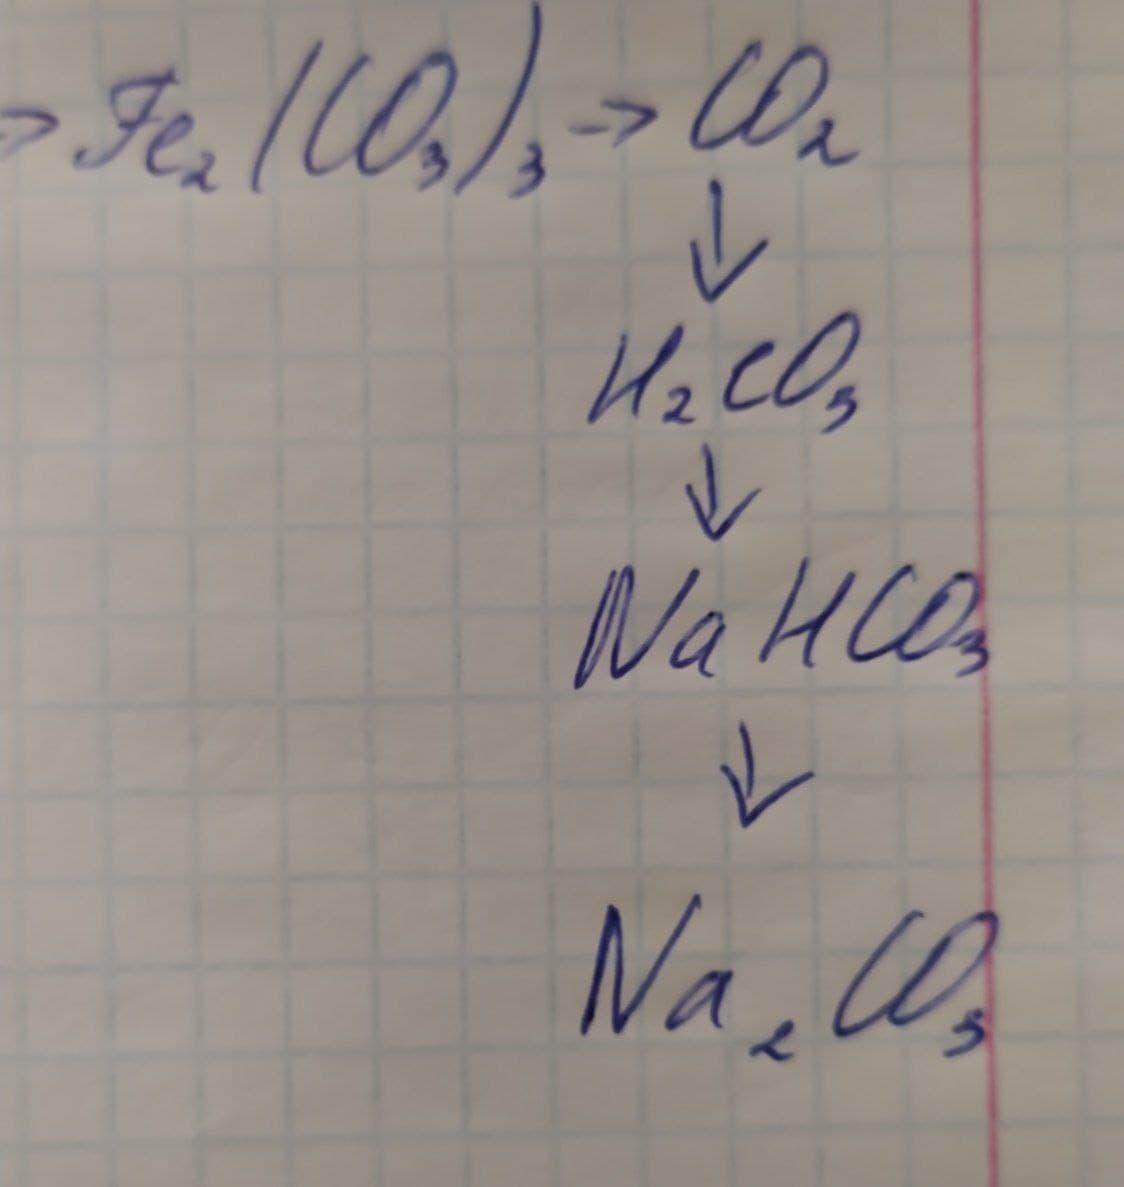 → Fe₂(CO₃)₃ → CO₂
↓
H₂CO₃
↓
NaHCO₃
↓
Na₂CO₃